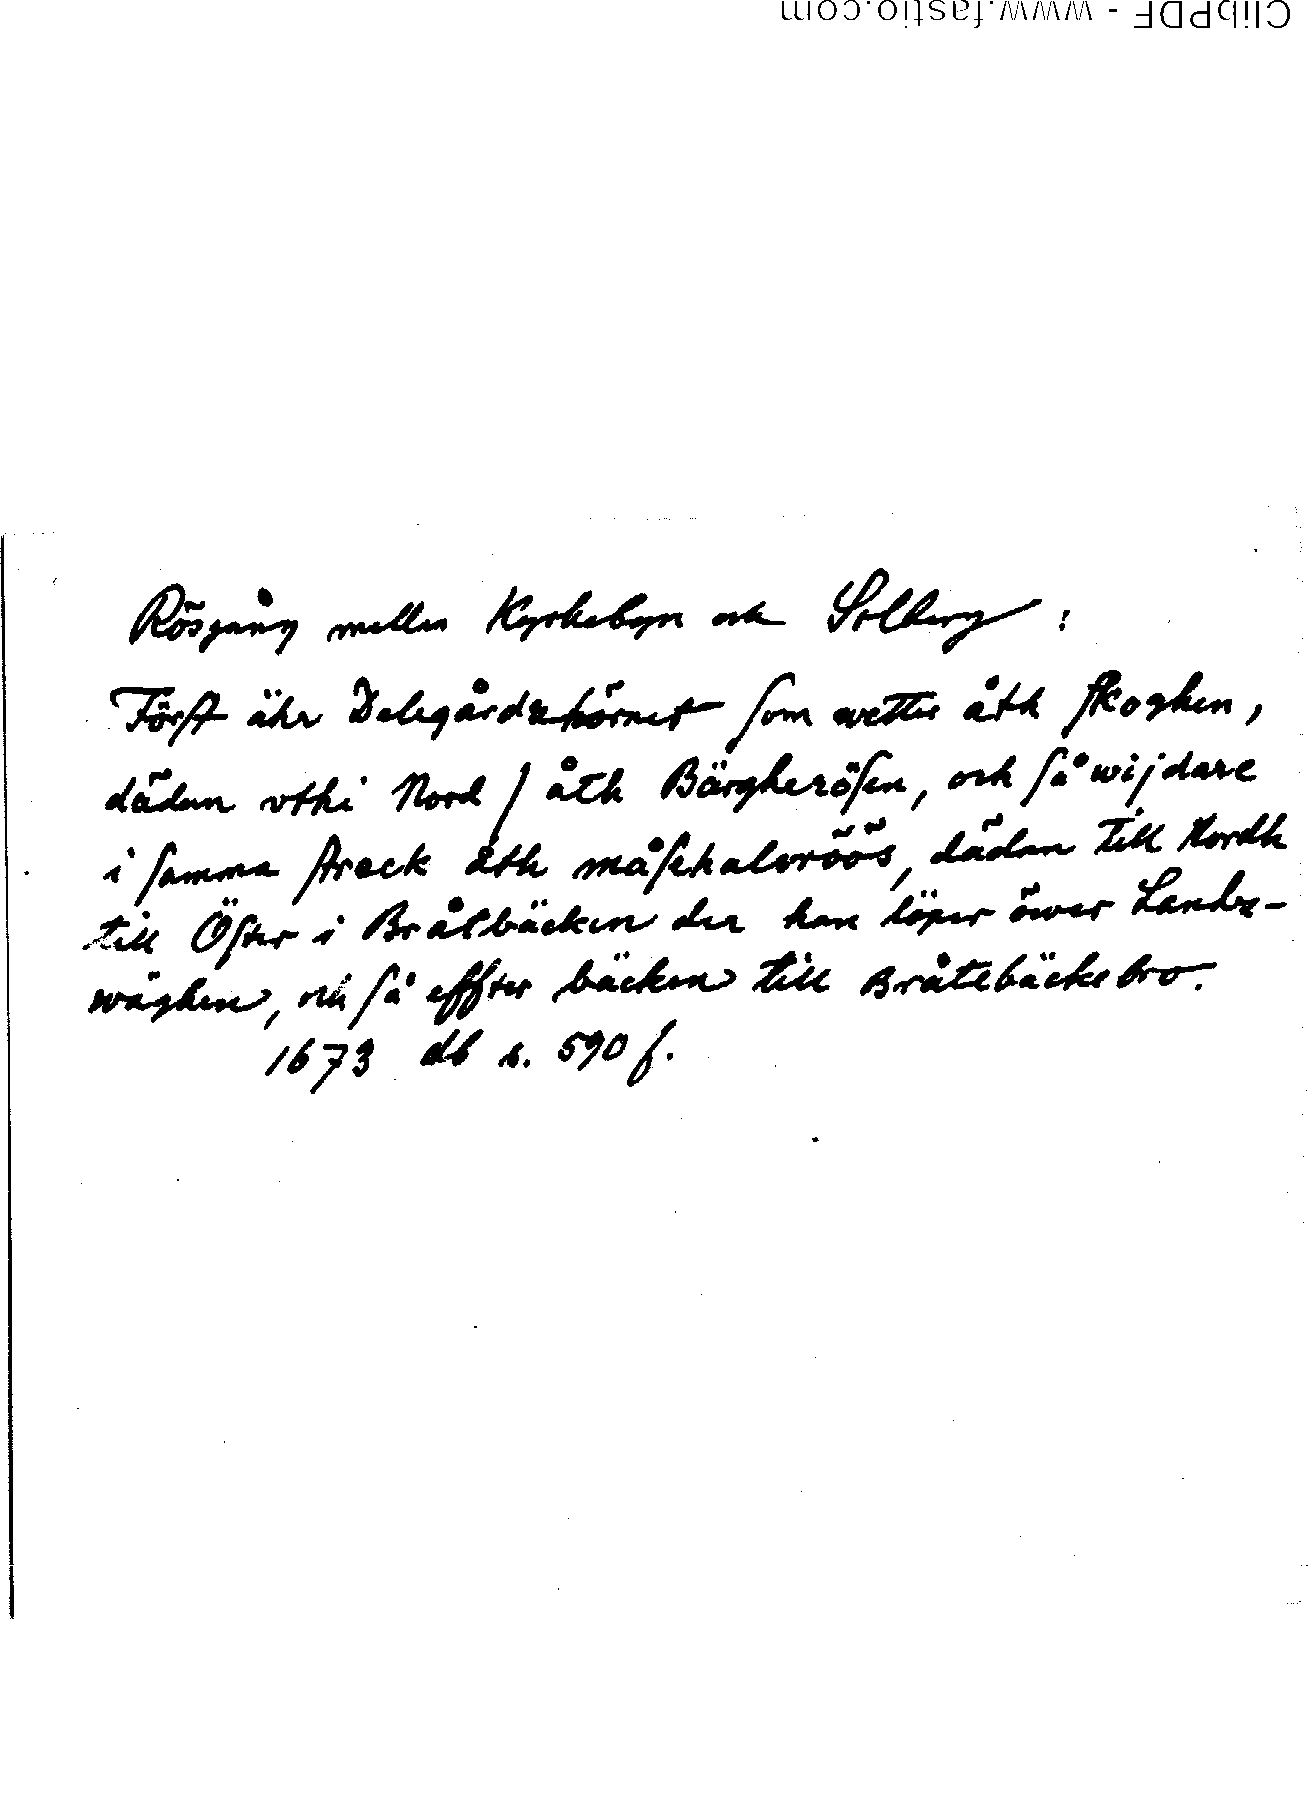 ClibPDF - www.fastio.com
Rösgång mellan Kyrkebyn och Solberg :
Först ähr Delegårdzhörnet som wetter åth skoghen,
dädan vthi Nord / åth Bärgherösen, och så wijdare
i samma streck åth måsehalsröös, dädan till Nordh
till Öster i Bråtbäcken der han löper öwer Landz-
wäghen, och så effter bäcken till Bråtebäckebro.
1673 db s. 590 f.